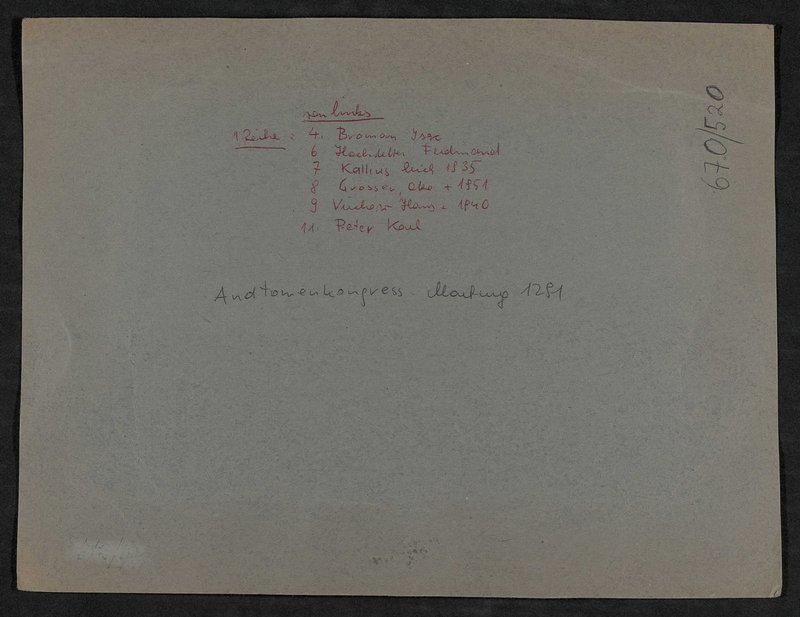 von links
1 Reihe: 4. Broman Ysac
6 Hochstetter Ferdinand
7 Kallius Erich 1935
8 Grosser, Otto + 1951
9 Virchow Hans 1940
11. Peter Karl
Anatomenkongress. Marburg 1291
670/520